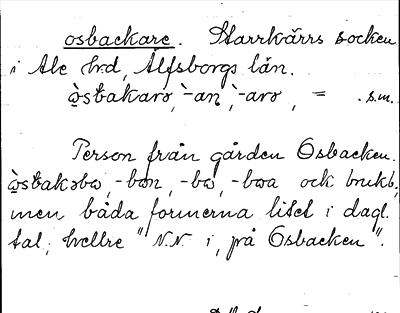 osbackare. Starrkärrs socken
i Ale hrd, Älfsborgs län.
òsbakarə, -an, -arə, = . s.m.
Person från gården Osbacken.
och brukb,
men båda formerna litet i dagl.
tal, hellre "N.N. i, på Osbacken".